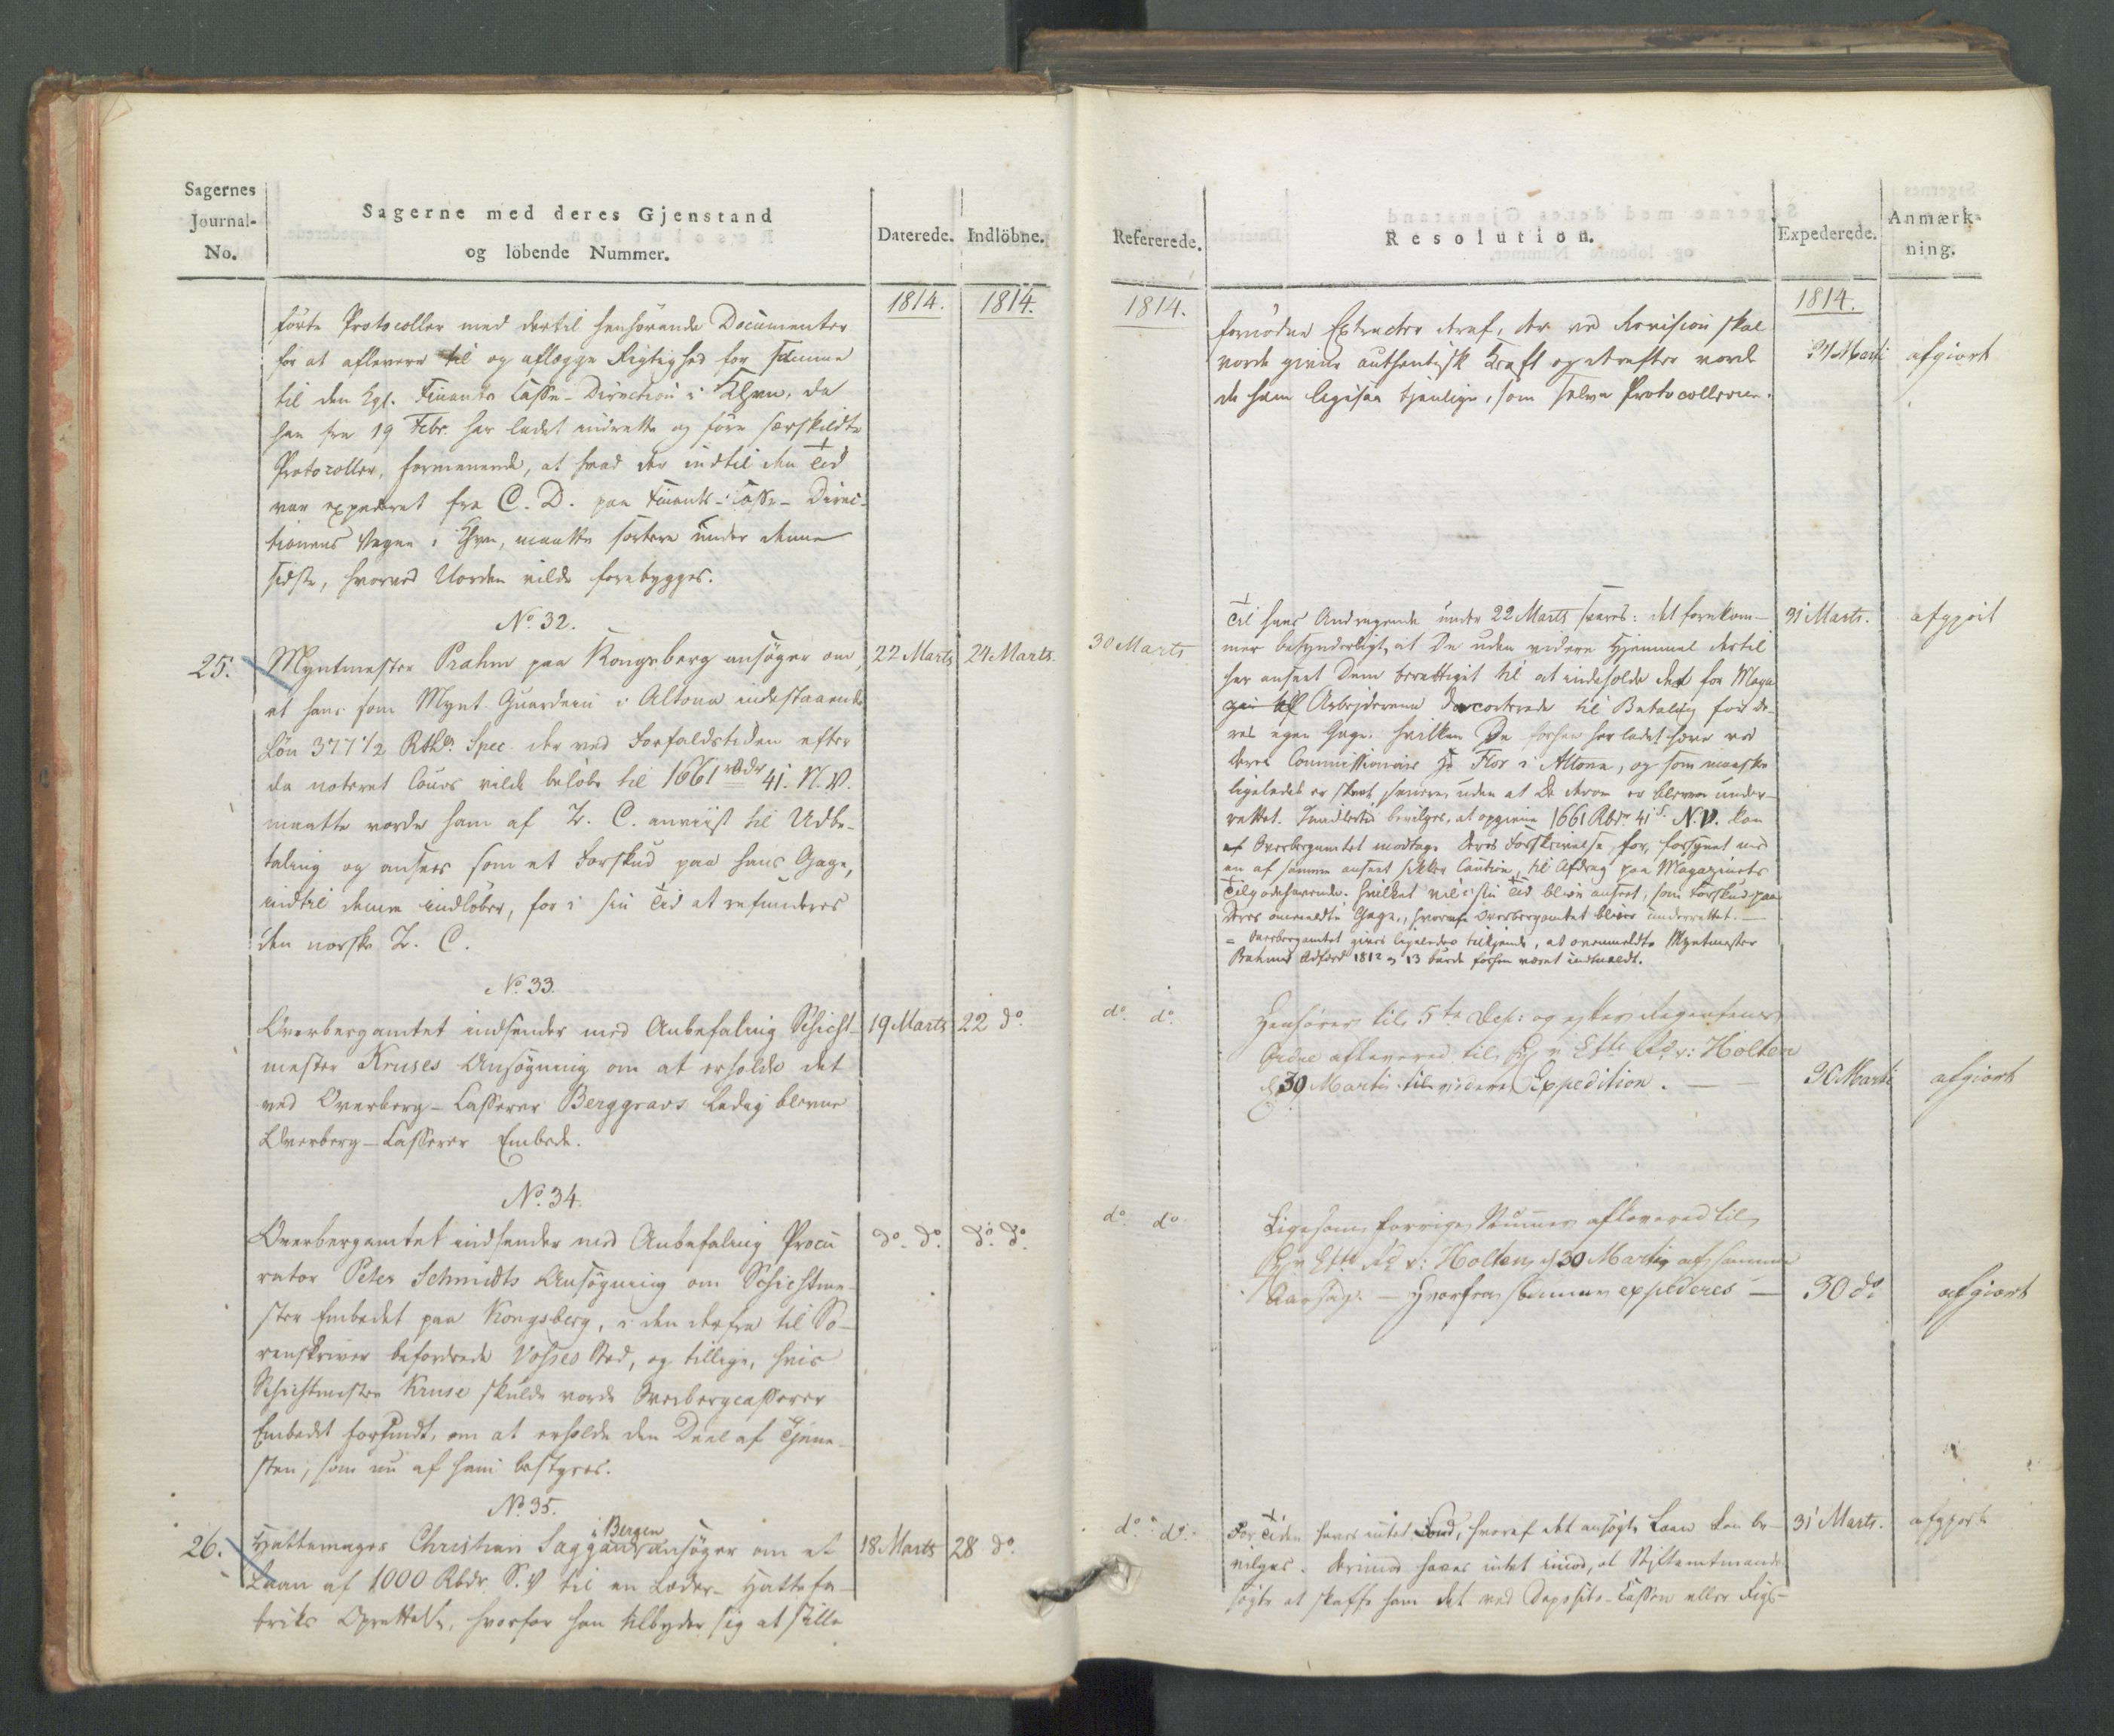 Sagernes
Journal-
No.
Sagerne med deres Gjenstand
og löbende Nummer.
Daterede.
Indlöbne.
1814.
1814.
förte Protocoller med dertil henhörende Documenter
for at aflevere til og aflægge Rigtighed for samme
til den Kgl. Finants Casse-Direction i Khvn, da
han fra 19 Febr. har ladet indrette og före særskildte
Protocoller, formenende, at hvad der indtil den Tid
var expederet fra C. D. paa Finants-Casse-Direc-
tionens Vegne i Khvn, maatte sortere under denne
sidste, hvorved Uorden vilde forebygges.
No. 32.
25.
Myntmester Prahm paa Kongsberg ansöger om,
at hans som Mynt-Guardein i Altona indestaaende
Lön 377 1/2 Rthlr. Spec. der ved Forfaldstiden efter
da noteret Cours vilde belöbe til 1661 rbdr 41 s. N. V.
maatte vorde ham af Z. C. anviist til Udbe-
taling og ansees som et Forskud paa hans Gage,
indtil denne indlöber, for i sin Tid at refunderes
den norske Z. C.
22 Marts
24 Marts.
No. 33.
Overbergamtet indsender med Anbefaling Schicht-
mester Kruses Ansögning om at erholde det
ved Overberg-Casserer Berggravs ledig blevne
Overberg-Casserer Embede.
19 Marts
22 do.
No. 34.
Overbergamtet indsender med Anbefaling Procu
rator Peter Schmidts Ansögning om Schichtme-
ster Embedet paa Kongsberg, i den derfra til So-
renskriver befordrede Vosses Sted, og tillige, hvis
Schichtmester Kruse skulde vorde Overbergcasserer
Embedet forundt, om at erholde den Deel af Tjene-
sten, som nu af ham bestyres.
do. do.
do. do.
No. 35.
26.
i Bergen
Hattemager Christian ansöger om et
Laan af 1000 Rbdr. S. V til en Læder-Hattefa-
briks Oprettelse, hvorfor han tilbyder sig at stille
18 Marts
28 do.
Refererede.
Resolution.
Expederede.
Anmærk-
ning.
1814.
1814.
fornödne Extracter deraf, der ved Revision skal
vorde givne authentisk Kraft og derefter vorde
de ham ligesaa tjenlige, som selve Protocollerne.
31 Marti
afgiort
30 Marts
Til hans Andragende under 22 Marts svares: det forekom-
mer besynderligt, at De uden videre Hjemmel dertil
har anseet Dem berettiget til at indeholde det for Maga
zin Arbejderne decorterede til Betaling for De-
res egen Gage, hvilken De forhen har ladet hæve ved
Deres Commissionair Hr. Flor i Altona, og som maaske
ligeledes er skeet senere, uden at De derom er bleven under-
rettet. Imidlertid bevilges, at opgivne 1661 Rbdr 41 s. N. V. kan
af Overbergamtet modtage Deres Forskrivelse for, forsynet med
en af samme anseet sikker Caution, til Afdrag paa Magazinets
Tilgodehavende. Hvilket vil i sin Tid blive anseet, som Forskud paa
Deres ommeldte Gage, hvoraf Overbergamtet bliver underrettet. —
= Overbergamtet gives ligeledes tilkjende, at ovenmeldte Myntmester
Prahms Adfærd 1812 og 13 burde forhen været indmeldt.
31 Marts.
afgjort
do. do.
Henhörer til 5te Dep: og efter Regentens
Ordre afleveret til v: Holten
d 30 Martii til videre Expedition. —
30 Marti
afgiort
do. do.
Ligesom forrige Nummer afleveret til
v: Holten d 30 Martii af samme
Aarsag. — Hvorfra samme expederes —
30 do
afgiort
do. do.
For Tiden haves intet Fond, hvoraf det ansögte Laan kan be-
vilges. Derimod haves intet imod, at Stiftamtmanden
sögte at skaffe ham det ved Deposito-Cassen eller Rigs-
31 Marts.
afgjort